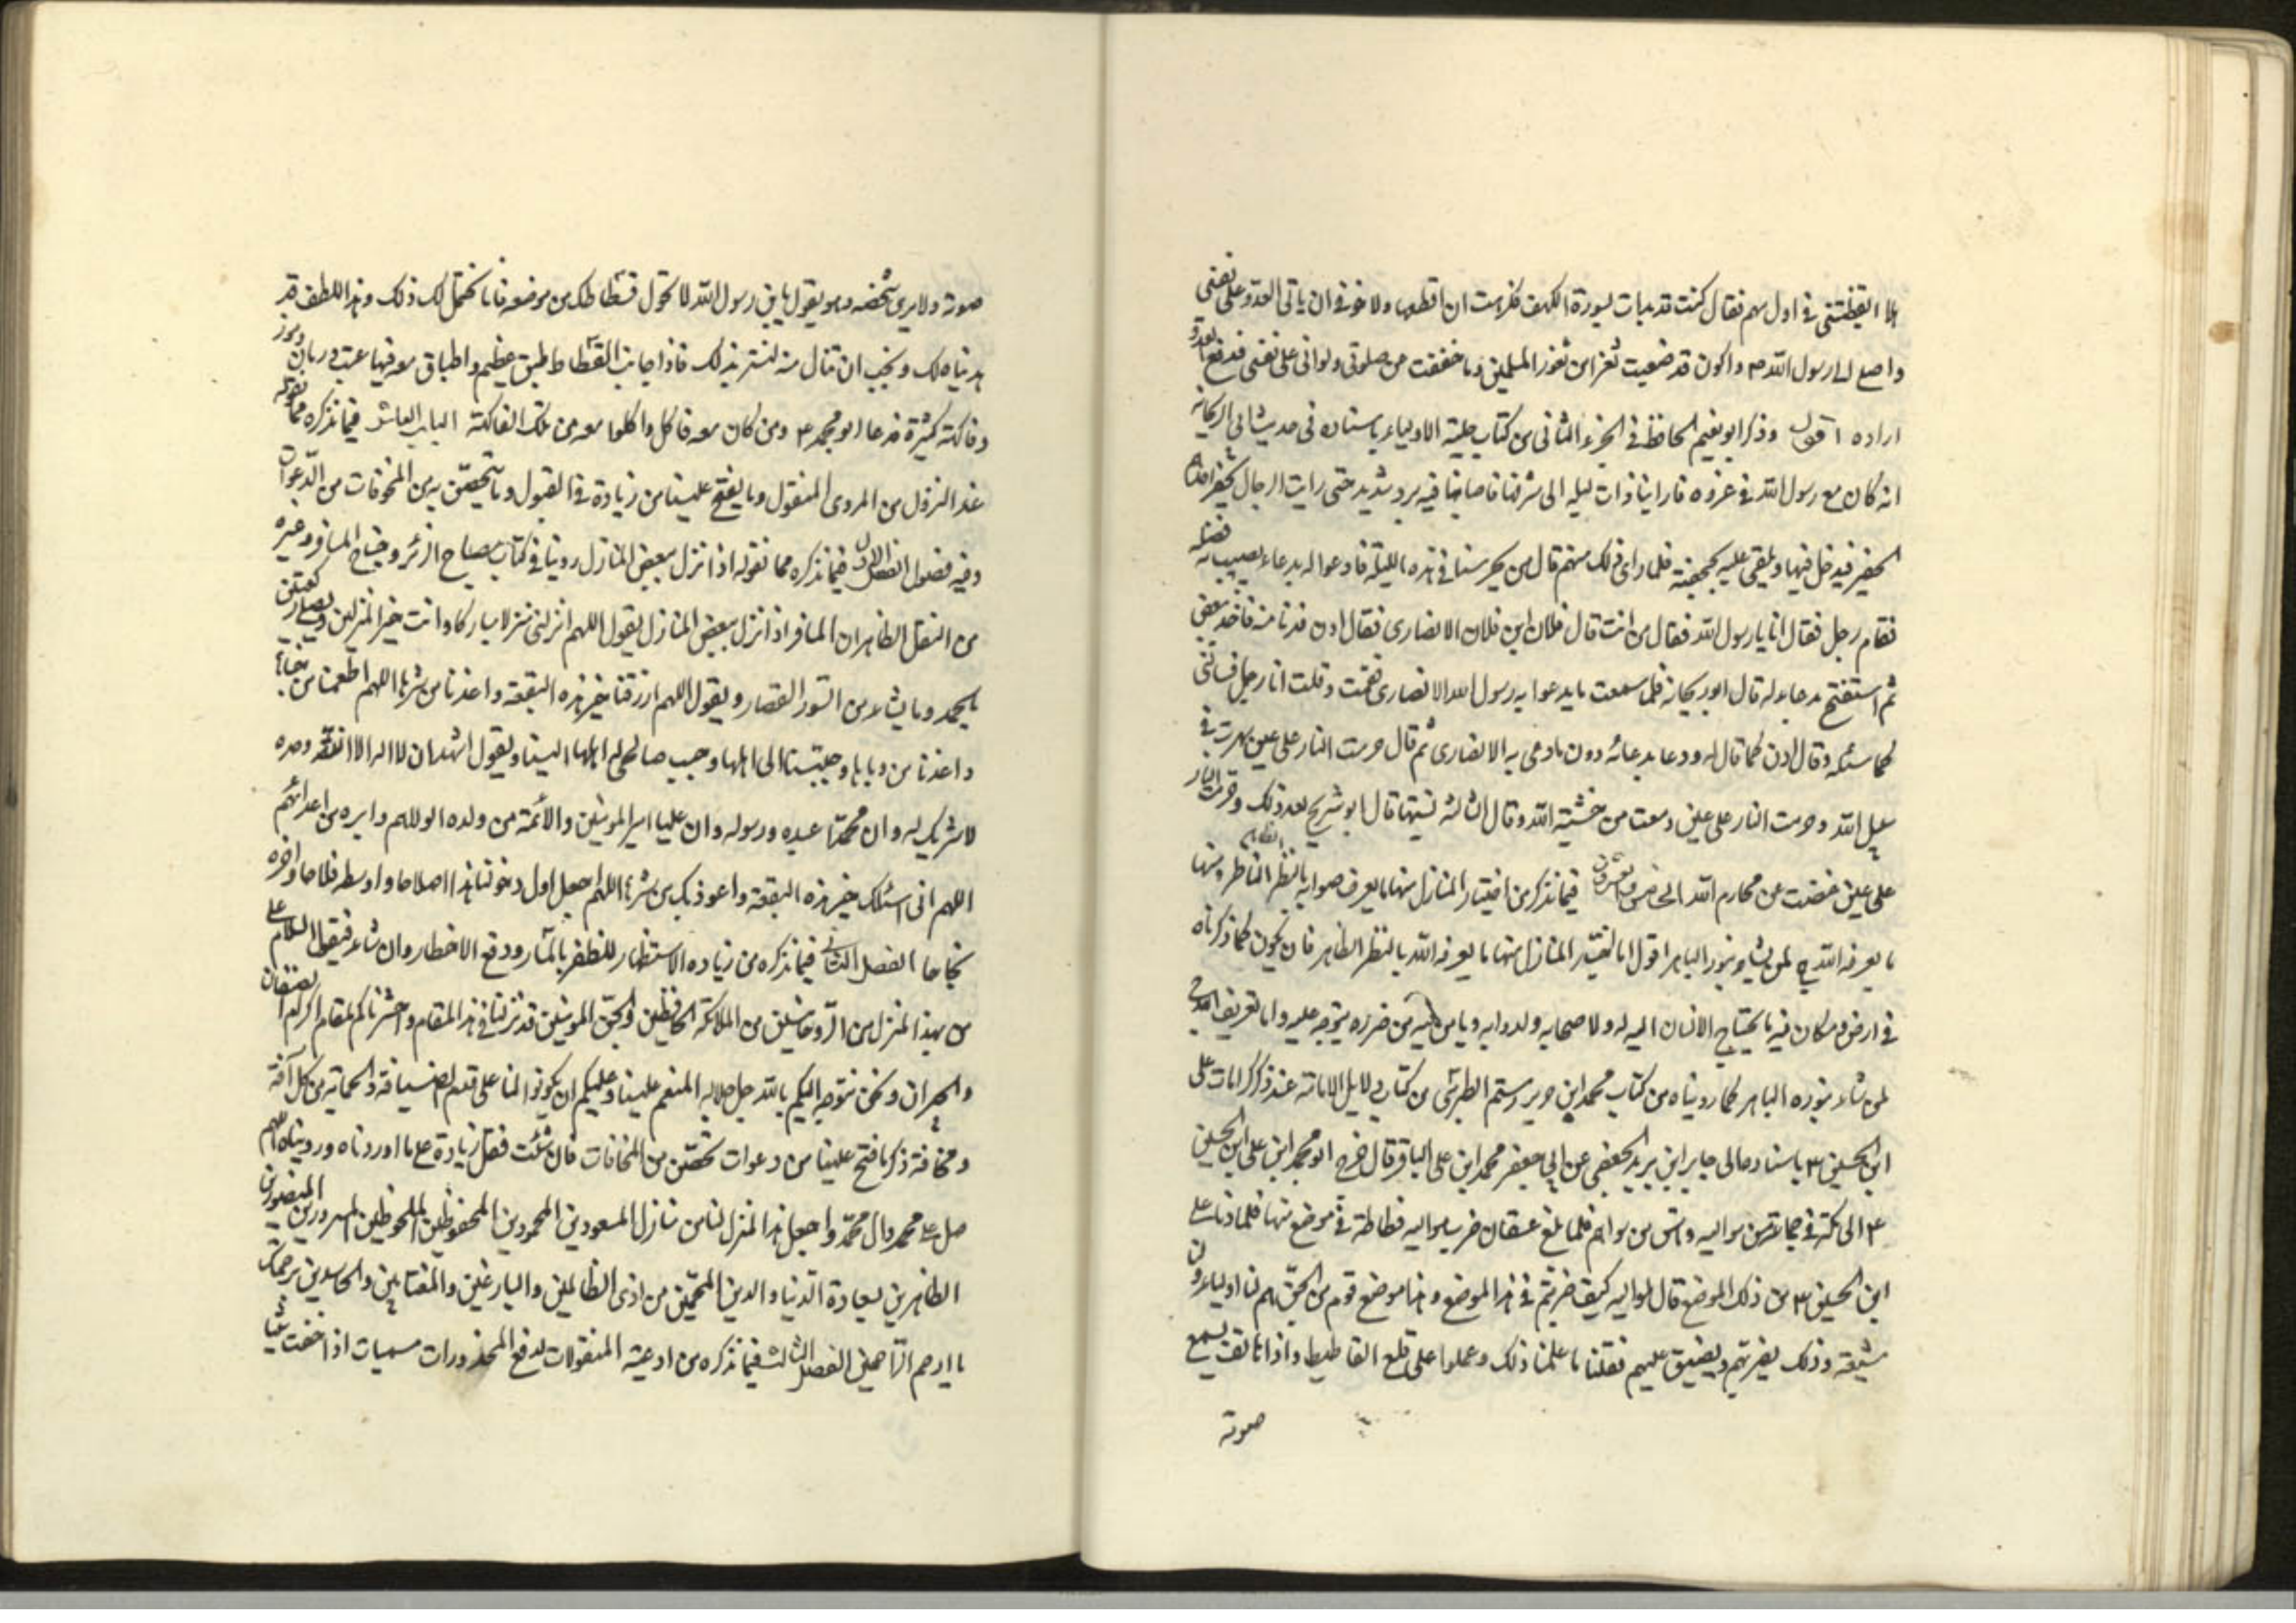 الا ايقظتنى فى اول سهم فقال كنت قد بدات بسورة الكهف فكرهت ان اقطعها ولا خوفى ان ياتى العدو على نفسى
واصل الى رسول الله ص واكون قد ضيعت ثغرا من ثغور المسلمين وما خففت من صلوتى ولو اتى على نفسى فدفع العدو
اراده اقول وذكر ابو نعيم الحافظ فى الجزء الثانى من كتاب حلية الاولياء باسناده فى حديث ابى ريحانه
انه كان مع رسول الله فى غزوه فاراينا ذات ليله الى شرفنا فاصابنا فيه برد شديد حتى رايت الرجال يحفر احدهم
الحفير فيدخل فيها ويلقى عليه بحجفته فلما راى ذلك منهم قال من يحرسنا فى هذه الليلة فادعو له بدعاء يصيب به فضله
فقام رجل فقال انا يا رسول الله فقال من انت قال فلان ابن فلان الانصارى فقال ادن فدنا منه فاخذ بعض
ثم استفتح بدعا له قال ابو ريحانه فلما سمعت ما يدعوا به رسول الله الانصارى فقمت وقلت انا رجل فسالنى
كما سئله وقال ادن كما قال له ودعا بدعائه دون ما دعى به الانصارى ثم قال حرمت النار على عين سهرت فى
سبيل الله وحرمت النار على عين دمعت من خشية الله وقال الثالثه نسيتها قال ابو شريح بعد ذلك وحرمت النار
على عين غضت عن محارم الله الخامس والعشرون فيما نذكر من اختيار المنازل منها ما يعرف صوابه بالنظر الظاهر ومنها
ما يعرفه الله لمن يشاء بنوره الباهر اقول اما اختيار المنازل منها ما يعرفه الله بالنظر الظاهر فان يكون كما ذكرناه
فى ارض ومكان فيه ما يحتاج الانسان اليه له ولاصحابه ولدوابه ويامن فيه من ضرره يتوجه عليه واما تعريف الله
لمن شاء بنوره الباهر كما رويناه من كتاب محمد ابن جرير رستم الطبرى من كتاب دلايل الامامة عند ذكر كرامات على
ابن الحسين ع باسناده الى جابر ابن يزيد الجعفى عن ابى جعفر محمد ابن على الباقر قال خرج ابو محمد ابن على ابن الحسين
ع الى مكة فى جماعة من مواليه وناس من سواهم فلما بلغ عسفان ضرب مواليه فسطاطه فى موضع منها فلما دنا على
ابن الحسين ع من ذلك الموضع قال لمواليه كيف ضربتم فى هذا الموضع وهذا موضع قوم من الجن هم لنا اولياء ولنا
شيعة وذلك يضر بهم ويضيق عليهم فقلنا ما علمنا ذلك وعملوا على قلع الفساطيط واذا هاتف يسمع
صوته
صوته ولا يرى شخصه وهو يقول يابن رسول الله لا تحول فسطاطك من موضعه فانا نحتمل لك ذلك وهذا اللطف قد
اهديناه لك ونحب ان تنال منه لنسر بذلك فاذا جانب الفسطاط طبق عظيم واطباق معه فيها عنب ورمان وموز
وفاكهة كثيرة فدعا ابو محمد ع ومن كان معه فاكل واكلوا معه من تلك الفاكهة الباب العاشر فيما نذكره مما نقوله
عند النزول من المروى المنقول وما يفتح علينا من زيادة فى القبول وما نتحصن به من المخوفات من الدعوات
وفيه فصول الفصل الاول فيما نذكره مما نقوله اذا نزل ببعض المنازل روينا فى كتاب مصباح الزائر وجناح المسافر وغيره
من النقل الظاهر ان المسافر اذا نزل ببعض المنازل يقول اللهم انزلنى منزلا مباركا وانت خير المنزلين ويصلى ركعتين
بالحمد وما يشاء من السور القصار ويقول اللهم ارزقنا خير هذه البقعة واعذنا من شرها اللهم اطعمنا من جناها
واعذنا من وباها وحببنا الى اهلها وحبب صالحى اهلها الينا ويقول اشهد ان لا اله الا الله وحده
لا شريك له وان محمدا عبده ورسوله وان عليا امير المؤمنين والائمة من ولده اتولاهم وابره من اعدائهم
اللهم انى اسئلك خير هذه البقعة واعوذ بك من شرها اللهم اجعل اول دخولنا هذا صلاحا واوسطه فلاحا واخره
نجاحا الفصل الثانى فيما نذكره من زيادة الاستظهار للظفر بالمسار ودفع الاخطار وان شاء فيقول السلام على
من بهذا المنزل من الروحانيين من الملائكة الحافظين والجن المؤمنين قد نزلنا فى هذا المقام واخترناكم لمقام اكرام الضيفان
والجيران ونحن نتوجه اليكم بالله جل جلاله المنعم علينا وعليكم ان يكونوا لنا على قدم الضيافة والحماية من كل آفة
ومخافة ذكر ما فتح علينا من دعوات تحصن من المخافات فان شئت فقل زيادة على ما اوردناه ورويناه اللهم
صل على محمد وال محمد واجعل هذا المنزل لنا من منازل المسعودين المحمودين المحفوظين الملحوظين المسرورين المنصورين
الظافرين بسعادة الدنيا والدين المحميين من اذى الظالمين والباغين والمغتابين والحاسدين برحمتك
يا ارحم الراحمين الفصل الثالث فيما نذكره من ادعية المنقولات لدفع المحذورات مسميات اذا خفت شيا